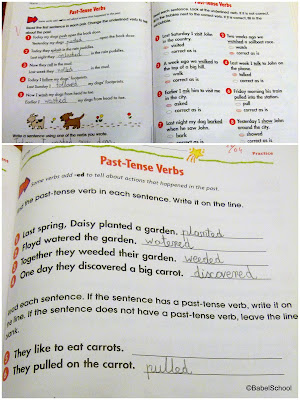 Past-Tense Verbs
Read the first sentence in each pair. Change the underlined verb to tell about the past.
Today my dogs push open the back door.
Yesterday my dogs open the back door.
Now they splash in the rain puddles.
Last night they in the rain puddles.
Now they roll in the mud.
Last week they in the mud.
Today I follow my dogs' footprints.
Earlier I followed my dogs' footprints.
Now I wash my dogs from head to toe.
Earlier I washed my dogs from head to toe.
Write a sentence using one of the verbs you wrote.
Last Saturday I visit John
in the country.
visited
correct as is
A week ago we walked to
the top of a big hill.
walk
correct as is
Earlier I ask him to visit me
in the city.
asked
correct as is
Last night my dog barked
when he saw John.
bark
correct as is
Two weeks ago we
watched a sailboat race.
watch
correct as is
Last week I talk to John on
the phone.
talked
correct as is
Friday morning his train
pulled into the station.
pull
correct as is
Yesterday I show John
around the city.
showed
correct as is
Practice
Past-Tense Verbs
Some verbs add -ed to tell about actions that happened in the past.
the past-tense verb in each sentence. Write it on the line.
Last spring, Daisy planted a garden. planted
Floyd watered the garden. watered
Together they weeded their garden. weeded
One day they discovered a big carrot. discovered
each sentence. If the sentence has a past-tense verb, write it on
the line. If the sentence does not have a past-tense verb, leave the line
They like to eat carrots.
They pulled on the carrot. pulled
©BabelSchool